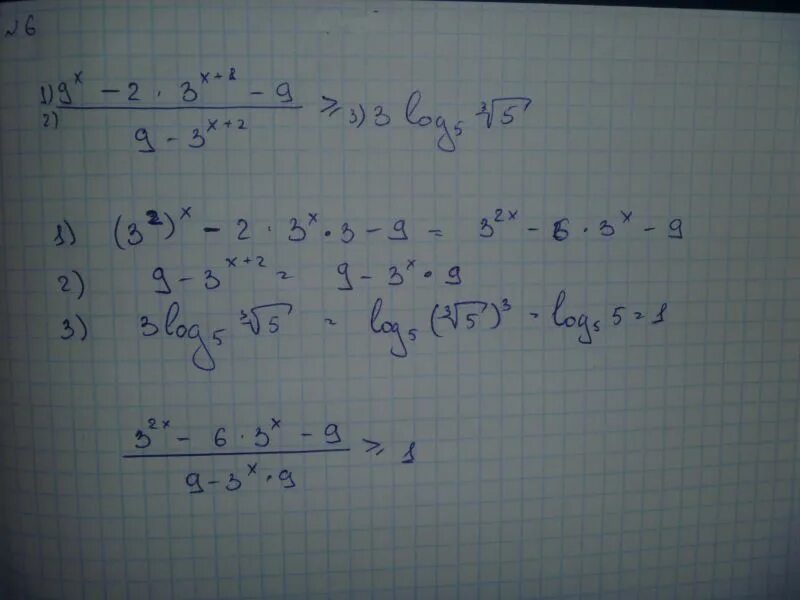 №6
1) 9^x - 2 · 3^(x+1) - 9
2) 9 - 3^(x+2)
≥ 3) 3 log₅ ∛5
1) (3²)^x - 2 · 3^x · 3 - 9 = 3^(2x) - 6 · 3^x - 9
2) 9 - 3^(x+2) = 9 - 3^x · 9
3) 3 log₅ ∛5 = log₅ (∛5)³ = log₅ 5 = 1
3^(2x) - 6 · 3^x - 9
9 - 3^x · 9
≥ 1